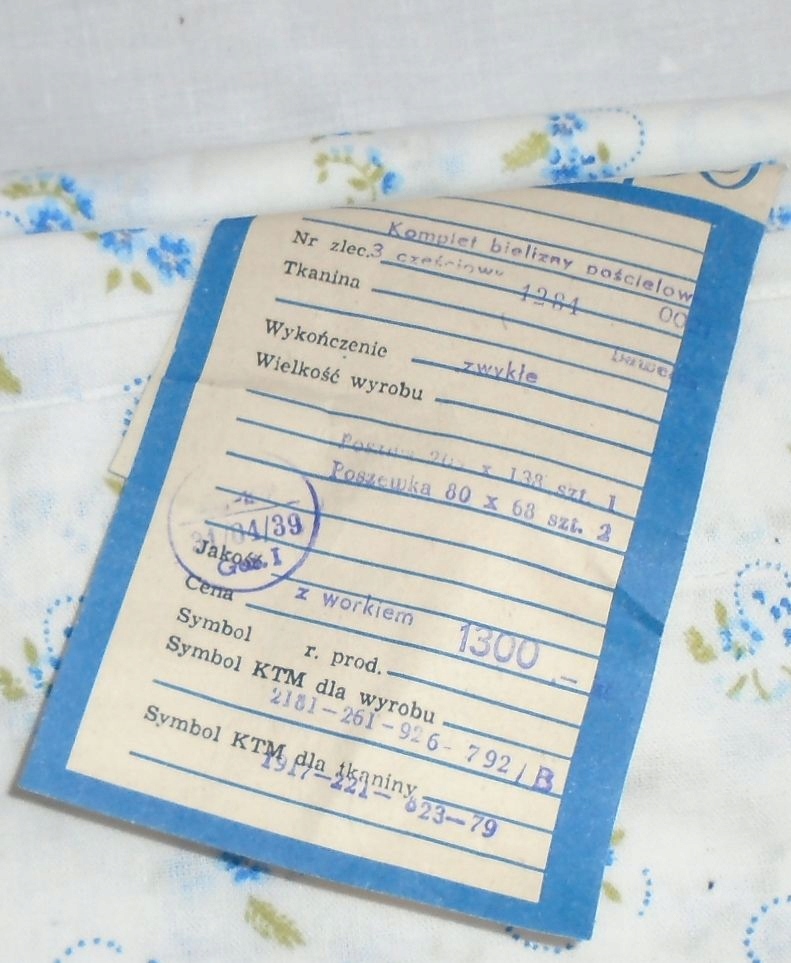 Komplet bielizny pościelow
Nr zlec. 3 częściowy
Tkanina 1281 00
Wykończenie zwykłe
Wielkość wyrobu
x 138 szt. 1
Poszewka 80 x 68 szt. 2
/04/39
Jakość Gat. I
Cena z workiem 1300,—
Symbol r. prod.
Symbol KTM dla wyrobu
2181-261-926-792/B
Symbol KTM dla tkaniny
1917-221-623-79